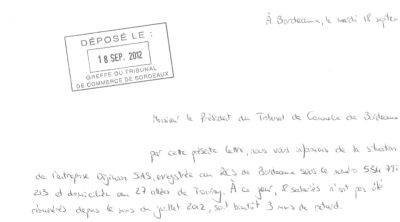 À Bordeaux, le mardi 18 septem
DÉPOSÉ LE :
18 SEP. 2012
GREFFE DU TRIBUNAL
DE COMMERCE DE BORDEAUX
Monsieur le Président du Tribunal de Commerce de Bordeaux
par cette présente lettre, nous vous informons de la situation
de l'entreprise SAS, enregistrée au RCS de Bordeaux sous le numéro 534 791
213 et domiciliée au 27 allées de Tourny. À ce jour, 8 salariés n'ont pas été
rémunérés depuis le mois de juillet 2012, soit bientôt 3 mois de retard.